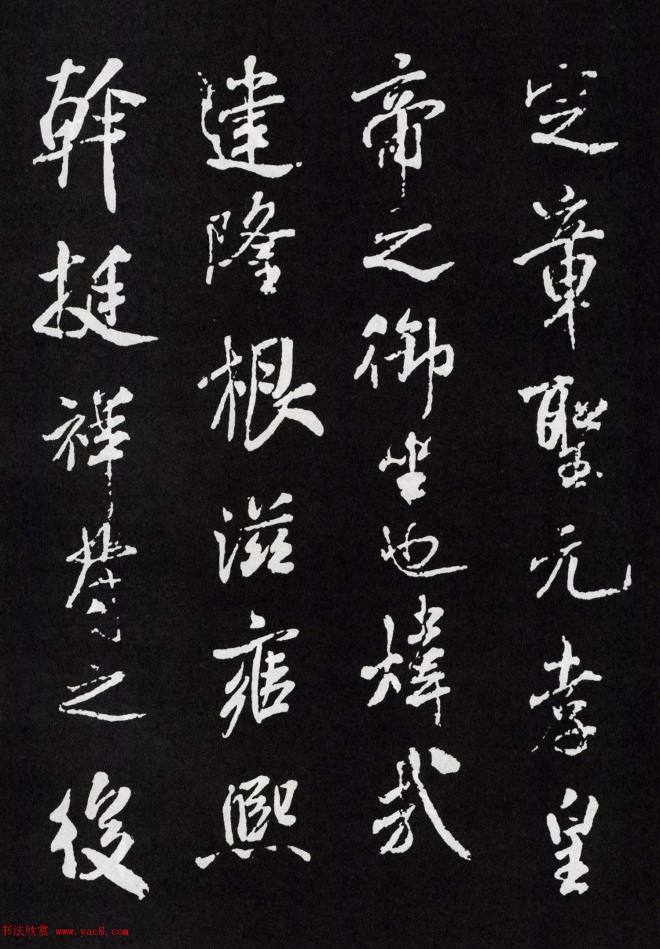 定章聖元孝皇
帝之御坐也煒哉
建隆根滋雍熙
幹挺祥之後
书法欣赏 www.yac8.com